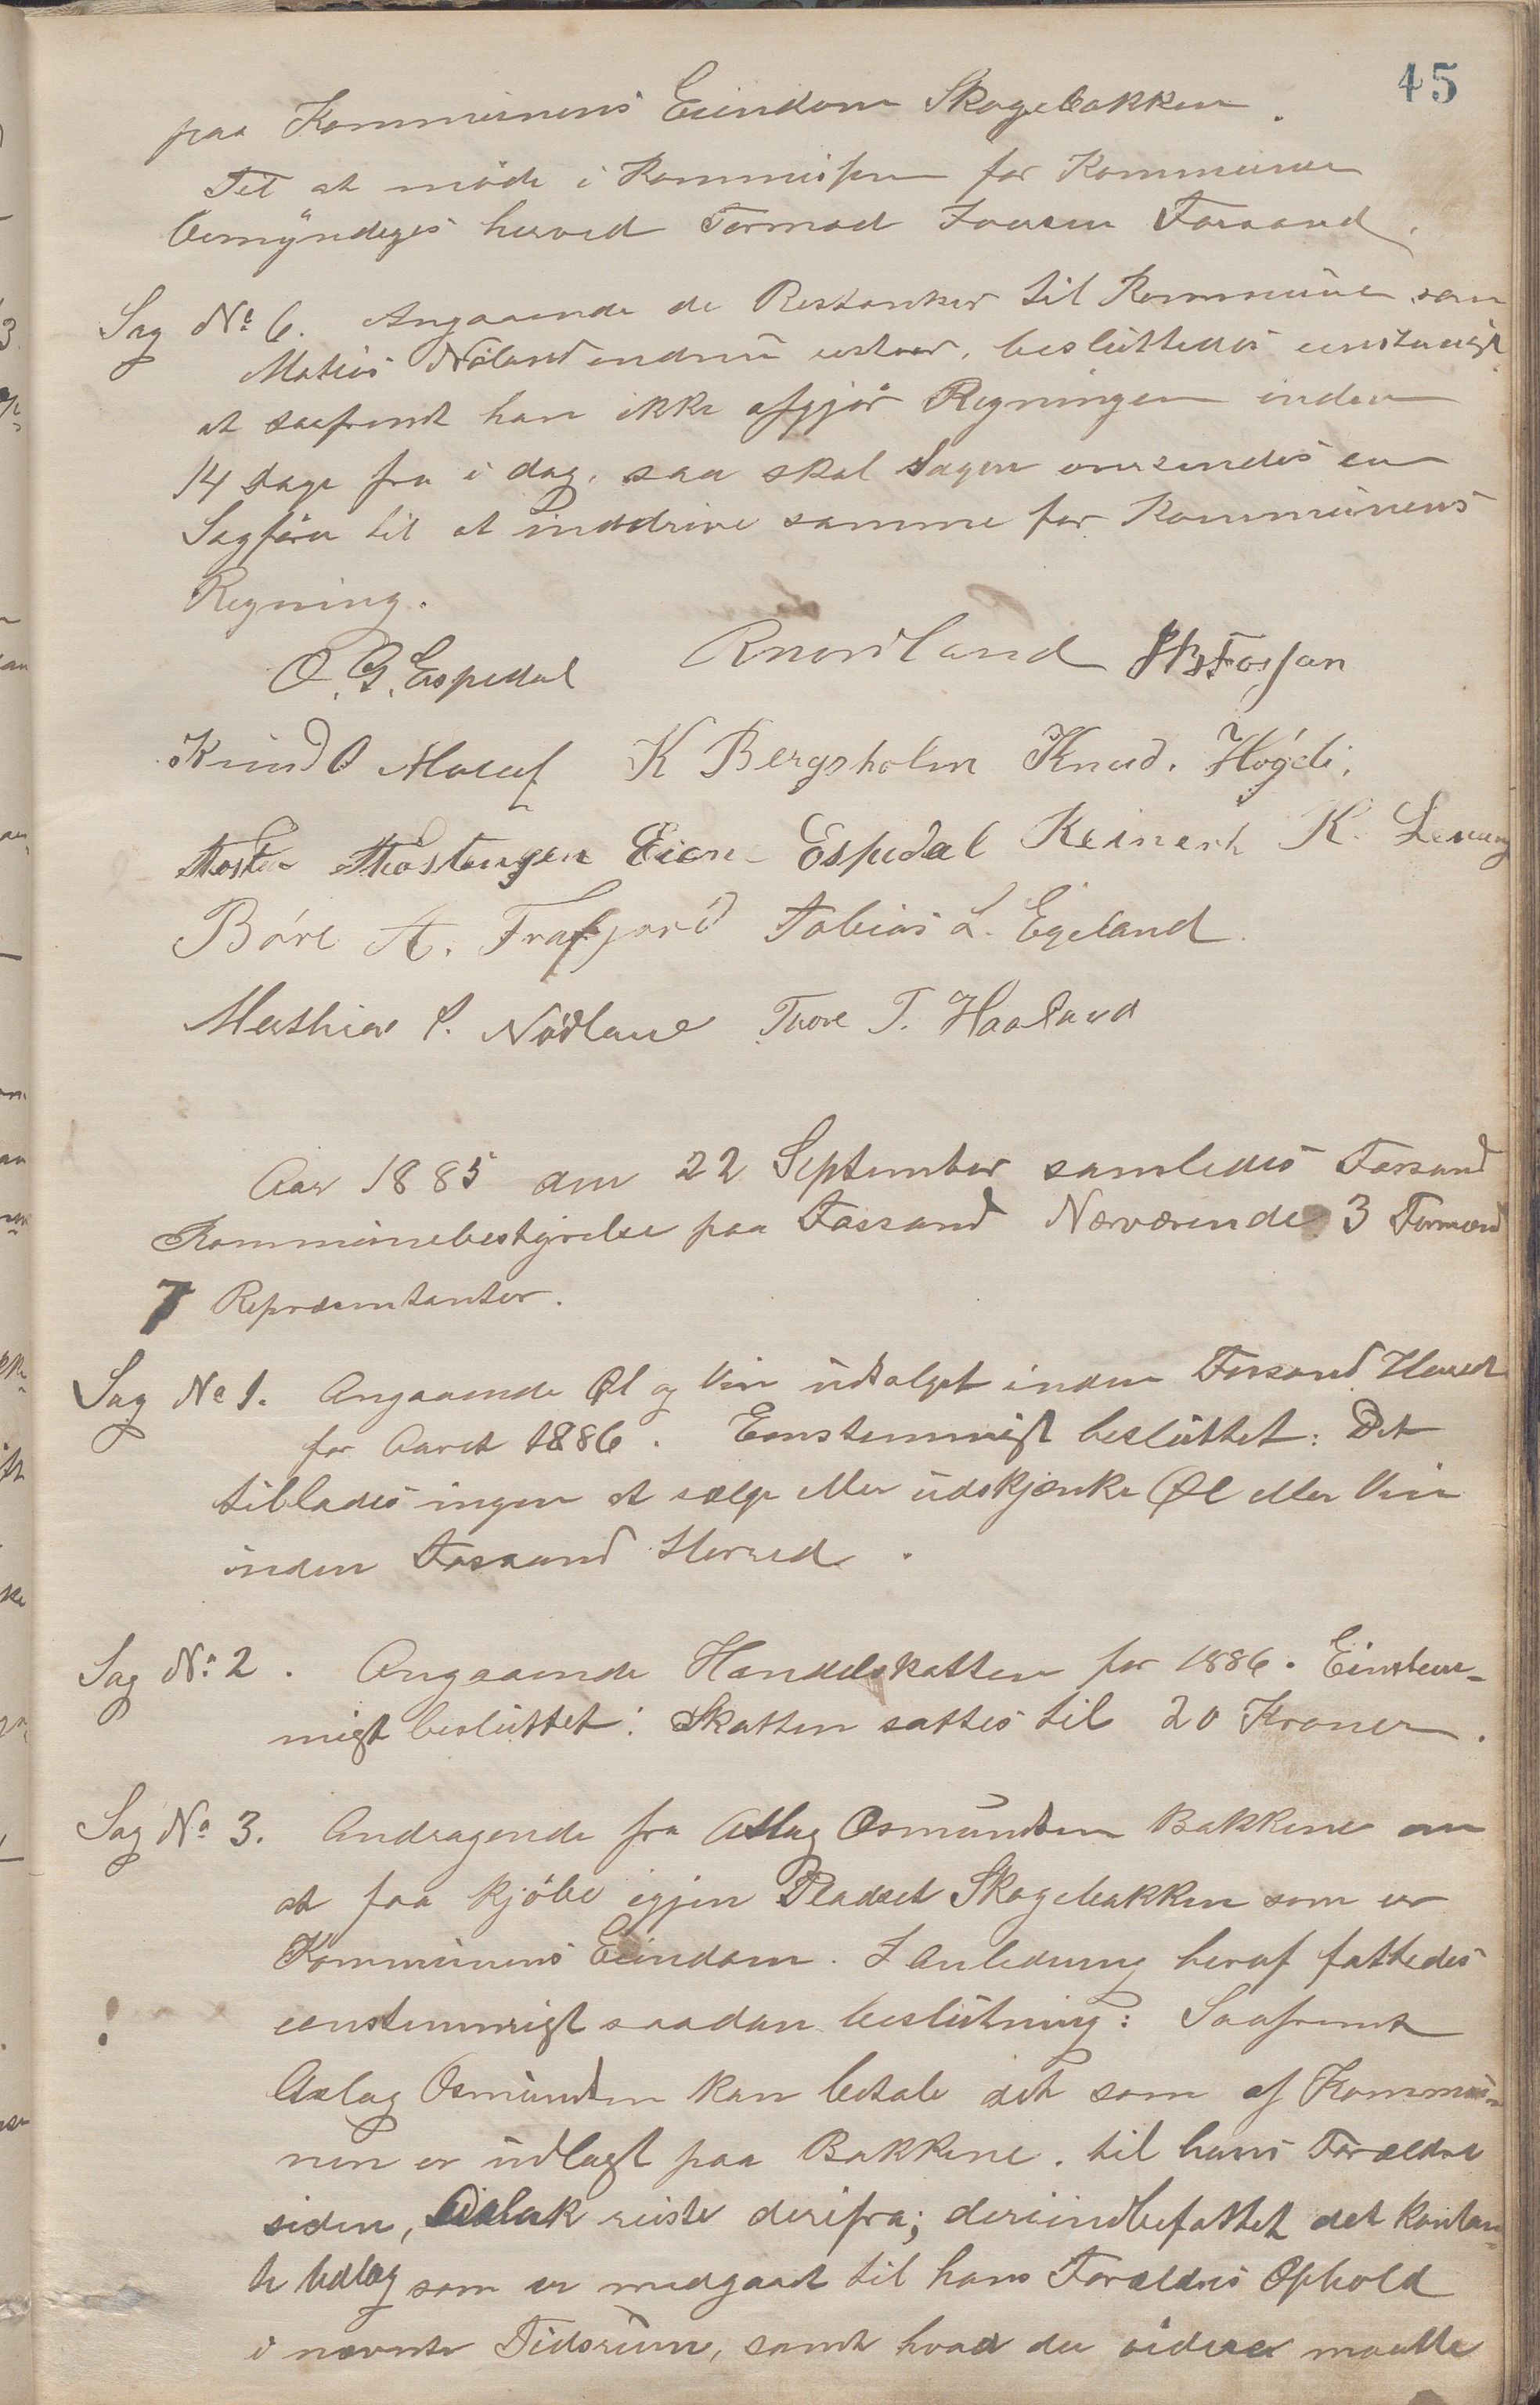 45
paa Kommunens Eiendom Skagebakken.
Til at møde i Kommisjon for Kommunen
bemyndiges herved Tormod Iversen Forsand.
Sag No 6. Angaaende de Restanser til Kommunen som
Matias Nöland endnu, besluttedes eenstemigt
at saafremt han ikke afgjør Regningen inden
14 Dage fra i dag, saa skal Sagen oversendes en
Sagfører til at inddrive samme for Kommunens
Regning.
O. G. Espedal
Knud O K Bergsholm Knud. Høgeli.
Espedal Reinert K.
Bore A. Frafjord Tobias L. Egeland
Mathias S. Nödland Tore T. Haaland
Aar 1885 den 22 September samledes Forsand
Kommunebestyrelse paa Forsand Nærværende 3 Formænd
7 Repræsentanter.
Sag No 1. Angaaende Øl og Vin udsalget inden Forsand Herred
for Aaret 1886. Eenstemmigt besluttet: Det
tillades ingen at sælge eller udskjænke Øl eller Vin
inden Forsand Herred.
Sag No 2. Angaaende Handelskatten for 1886. Einstem-
migt besluttet: Skatten sattes til 20 Kroner.
Sag No 3. Andragende fra Aslag Osmundsen Bakkene om
at faa kjöbe igjen Pladset Skagebakken som er
Kommunens Eiendom. I Anledning heraf fattedes
eenstemmigt saadan beslutning: Saafremt
Aslag Osmundsen kan betale det som af Kommu-
nen er udlagt paa Bakkene, til hans Forældre
siden, Aslak reiste derifra; deriindbefattet det kontan-
te Udlæg som er medgaaet til hans Forældres Ophold
i nævnte Tidsrum, samt hvad der videre maatte